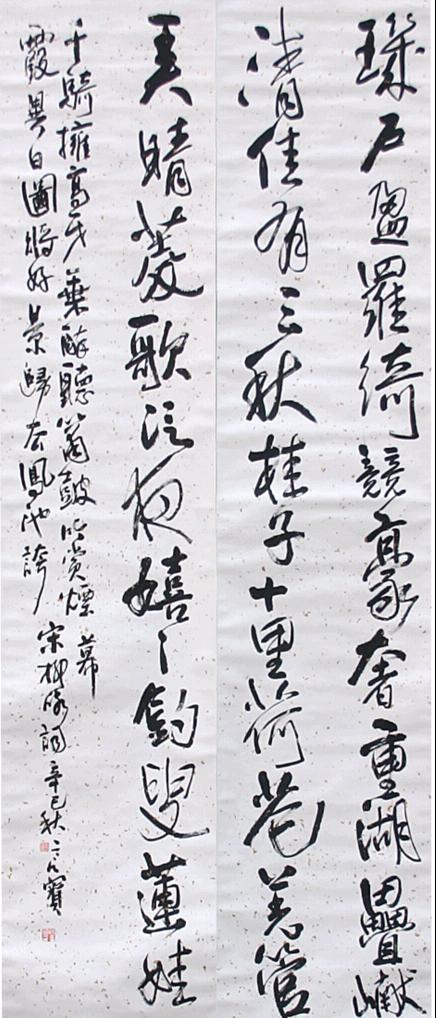 璣戶盈羅綺競豪奢重湖疊巘
清佳有三秋桂子十里荷花羌管
弄晴菱歌泛夜嬉〻釣叟蓮娃
千騎擁高牙乘醉聽簫鼓吟賞煙
霞異日圖將好景歸去鳳池誇 宋柳永詞辛巳秋